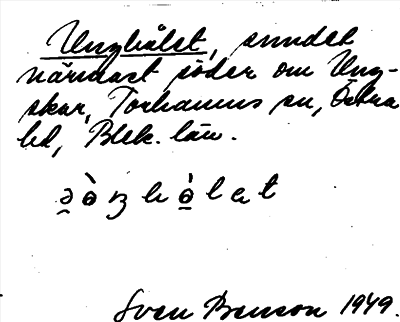 Unghålet, sundet
närmast söder om Ung-
skär, Torhamns sn, Östra
hd, Blek. län.
Sven Benson 1949.